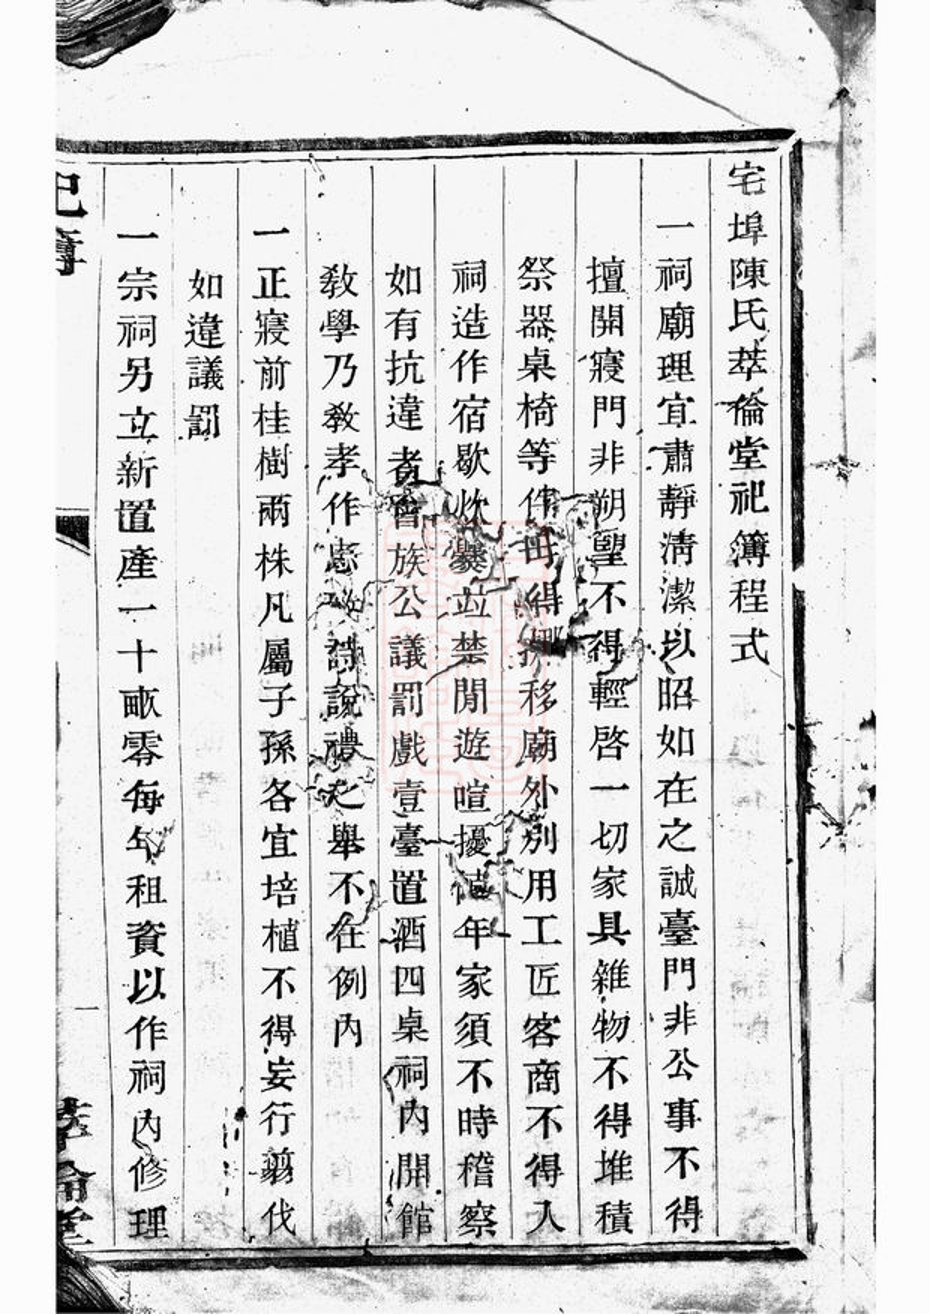 宅埠陳氏萃倫堂祀簿程式
一祠廟理宜肅靜淸潔以昭如在之誠臺門非公事不得
擅開寢門非朔望不得輕啓一切家具雜物不得堆積
祭器桌椅等件毋得挪移廟外別用工匠客商不得入
祠造作宿歇炊爨並禁閒遊喧擾値年家須不時稽察
如有抗違者會族公議罰戲壹臺置酒四桌祠內開館
敎學乃敎孝作忠詩說禮之舉不在例內
一正寢前桂樹兩株凡屬子孫各宜培植不得妄行剪伐
如違議罰
一宗祠另立新置產一十畝零每年租資以作祠內修理
祀簿
萃倫堂